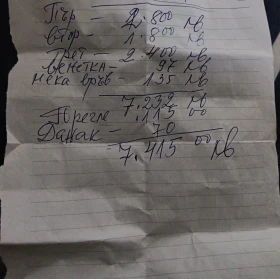 Пър — 2.800 лв
втор — 1.800 лв
Трет — 2.400 лв
венетка — 97 лв
мека връв — 135 лв
7.232 лв
Прегле — .115 00
Данак — 70
7.415 00 лв